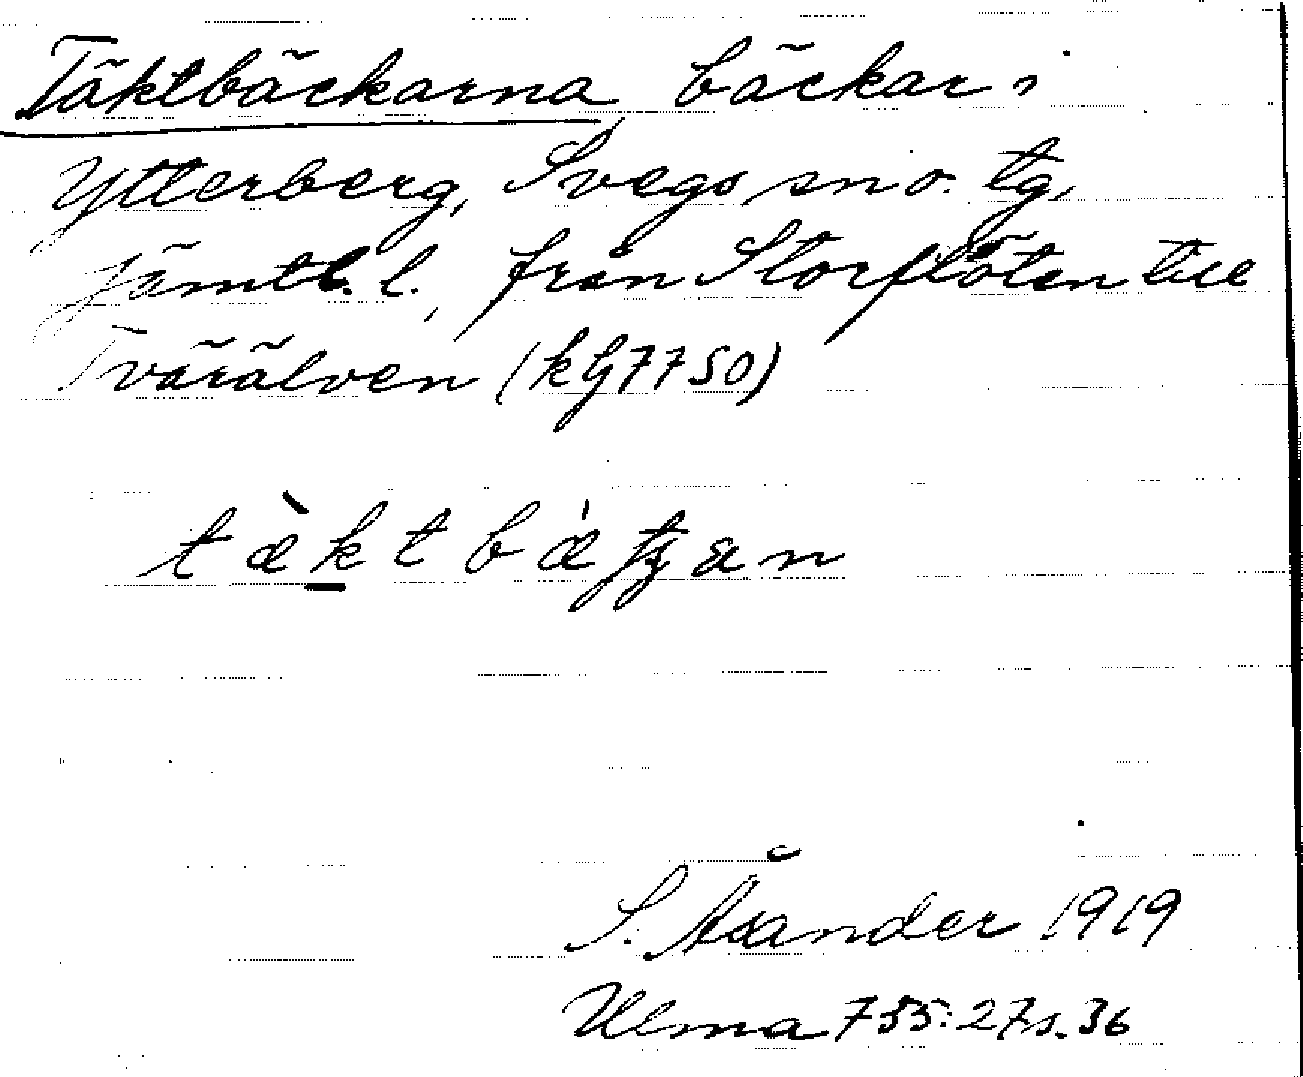 Täktbäckarna bäckar i
Ytterberg, Svegs sn o. tg,
Jämtl. l. från Storflöten till
Tvärälven (kG7750)
tæktbæ an
S. Åsander 1919
Ulma 755:27 s. 36